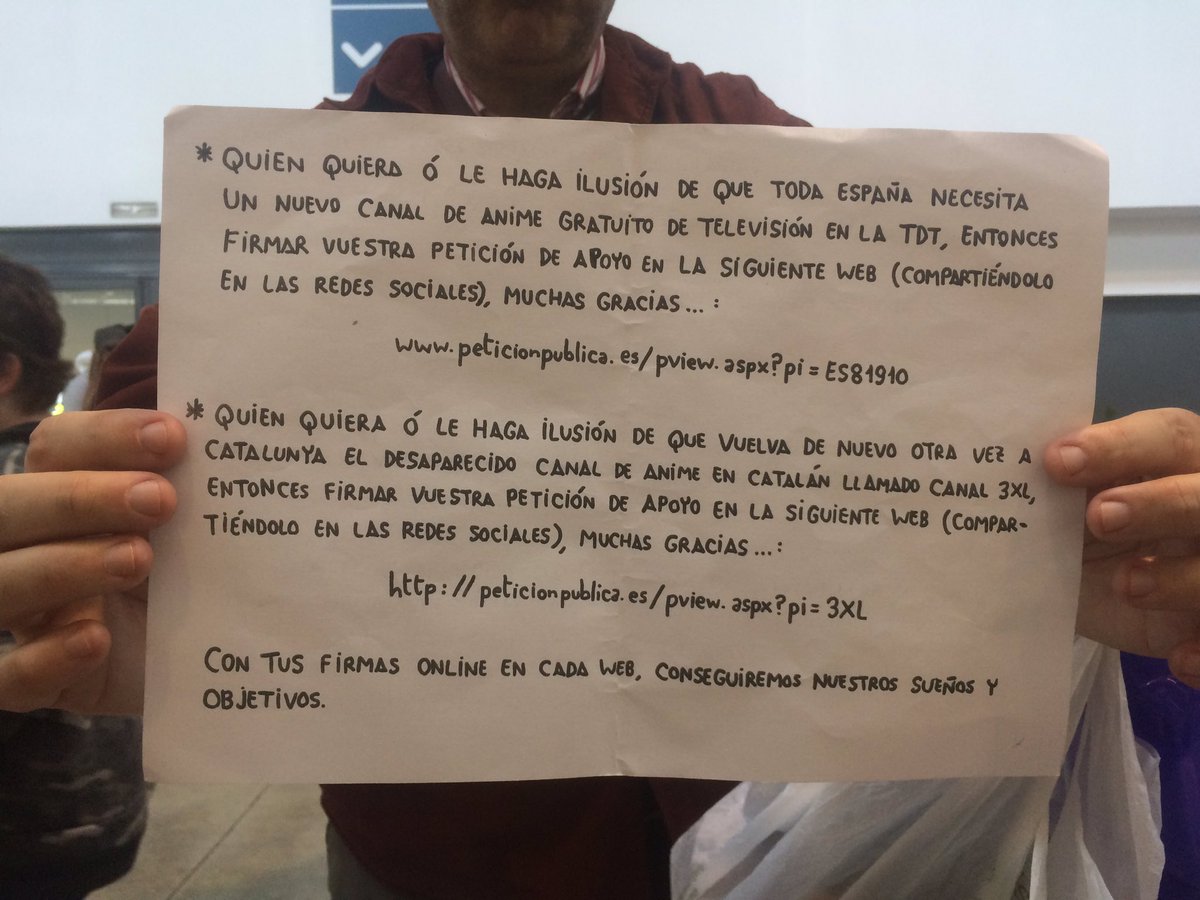 * QUIEN QUIERA Ó LE HAGA ILUSIÓN DE QUE TODA ESPAÑA NECESITA
UN NUEVO CANAL DE ANIME GRATUITO DE TELEVISIÓN EN LA TDT, ENTONCES
FIRMAR VUESTRA PETICIÓN DE APOYO EN LA SIGUIENTE WEB (COMPARTIÉNDOLO
EN LAS REDES SOCIALES), MUCHAS GRACIAS... :
www.peticionpublica.es/pview.aspx?pi=ES81910
* QUIEN QUIERA Ó LE HAGA ILUSIÓN DE QUE VUELVA DE NUEVO OTRA VEZ A
CATALUNYA EL DESAPARECIDO CANAL DE ANIME EN CATALÁN LLAMADO CANAL 3XL,
ENTONCES FIRMAR VUESTRA PETICIÓN DE APOYO EN LA SIGUIENTE WEB (COMPAR-
TIÉNDOLO EN LAS REDES SOCIALES), MUCHAS GRACIAS...:
http://peticionpublica.es/pview.aspx?pi=3XL
CON TUS FIRMAS ONLINE EN CADA WEB, CONSEGUIREMOS NUESTROS SUEÑOS Y
OBJETIVOS.